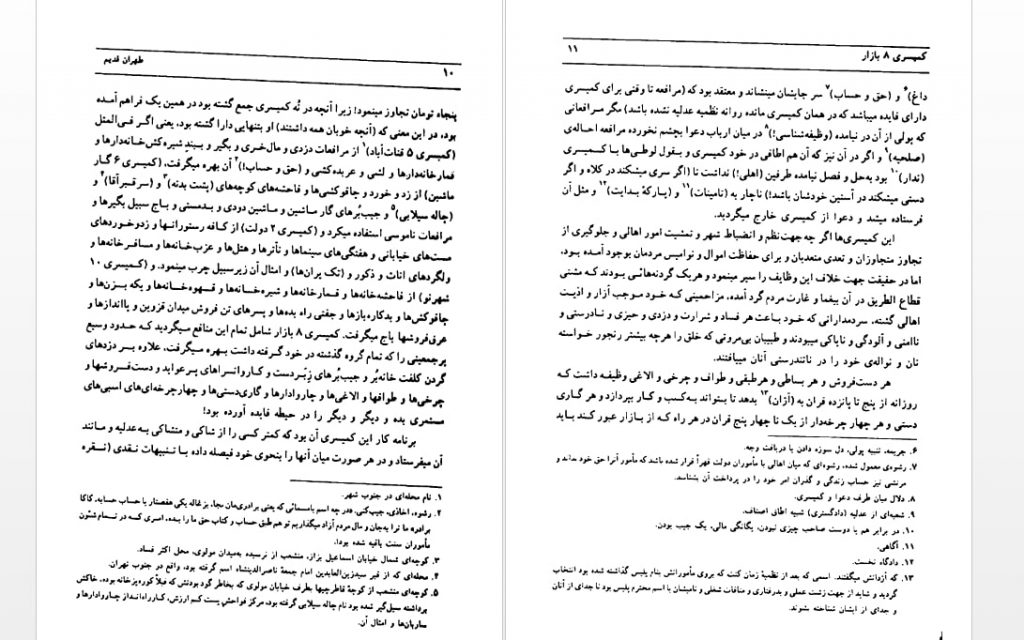 ۱۰ طهران قدیم
پنجاه تومان تجاوز مینمود! زیرا آنچه در نُه کمیسری جمع گشته بود در همین یک فراهم آمده
بود، در این معنی که (آنچه خوبان همه داشتند) او بتنهایی دارا گشته بود، یعنی اگر فی‌المثل
(کمیسری ۵ قنات‌آباد)۱ از مرافعات دزدی و مال‌خری و بگیر و ببندِ شیره‌کش‌خانه‌دارها و
قمارخانه‌دارها و لشی و عربده‌کشی و (حق و حساب)!۲ آن بهره میگرفت، (کمیسری ۶ گار
ماشین) از زد و خورد و چاقوکشی‌ها و فاحشه‌های کوچه‌های (پشت بدنه)۳ و (سرقبرآقا)۴ و
(چاله سیلابی)۵ و جیب‌بُرهای گار ماشین و ماشین دودی و بدمستی و باج سبیل بگیرها و
مرافعات ناموسی استفاده میکرد و (کمیسری ۲ دولت) از کافه رستورانها و زدوخوردهای
مست‌های خیابانی و هفتگی‌های سینماها و تآترها و هتل‌ها و عزب‌خانه‌ها و مسافرخانه‌ها و
ولگردهای اناث و ذکور و (تک پران‌ها) و امثال آن زیرسبیل چرب مینمود. و (کمیسری ۱۰
شهرنو) از فاحشه‌خانه‌ها و قمارخانه‌ها و شیره‌خانه‌ها و قهوه‌خانه‌ها و یکه بزن‌ها و
چاقوکش‌ها و بدکاره‌بازها و جفتی راه بده‌ها و پسرهای تن فروش میدان قزوین و پااندازها و
عرق‌فروشها باج میگرفت. کمیسری ۸ بازار شامل تمام این منافع میگردید که حدود وسیع
پرجمعیتی را که تمام گروه گذشته در خود گرفته داشت بهره میگرفت، علاوه بر دزدهای
گردن کلفت خانه‌بُر و جیب‌بُرهای زِبَردست و کاروانسراهای پرعواید و دست‌فروشها و
چرخی‌ها و طوافها و الاغی‌ها و چاروادارها و گاری‌دستی‌ها و چهارچرخه‌ای‌های اسبی‌های
مستمری بده و دیگر و دیگر را در حیطه فایده آورده بود!
برنامه کار این کمیسری آن بود که کمتر کسی را از شاکی و متشاکی به‌عدلیه و مانند
آن میفرستاد و در هر صورت میان آنها را بنحوی خود فیصله داده با تنبیهات نقدی (نقره
۱. نام محله‌ای در جنوب شهر.
۲. رشوه، اخاذی، جیب‌کنی. «در چه اسم بامسمائی که یعنی برادری‌مان بجا، بزغاله یکی هفتصنار یا حساب حسابه، کاکا
برادر» ما ترا به‌جان و مال مردم آزاد میگذاریم تو هم طبق حساب و کتاب حق ما را بده، امری که در تمام شئون
مأموران سنت باقیه شده بود!.
۳. کوچه‌ای شمال خیابان اسماعیل بزاز، منشعب از نرسیده به‌میدان مولوی، محل اکثر فساد.
۴. محله‌ای که از قبر سیدزین‌العابدین امام جمعهٔ ناصرالدینشاه اسم گرفته بود، واقع در جنوب تهران.
۵. کوچه‌ای منشعب از کوچهٔ قاطرچیها بطرف خیابان مولوی که بخاطر گود بودنش که قبلاً کوره‌پزخانه بوده، خاکش
برداشته سیل‌گیر شده بود نام چاله سیلابی گرفته بود، مرکز فواحش پست کم ارزش، کارراه‌انداز چاروادارها و
ساربان‌ها و امثال آن.
کمیسری ۸ بازار ۱۱
داغ)۶ و (حق و حساب)۷ سر جایشان مینشاند و معتقد بود که (مرافعه تا وقتی برای کمیسری
دارای فایده میباشد که در همان کمیسری مانده روانه نظمیه عدلیه نشده باشد) مگر مرافعاتی
که پولی از آن در نیامده (وظیفه‌شناسی!)۸ در میان ارباب دعوا بچشم نخورده مرافعه احاله‌ی
(صلحیه)۹ و اگر در آن نیز که آن هم اطاقی در خود کمیسری و بقول لوطی‌ها با کمیسری
(ندار)۱۰ بود به‌حل و فصل نیامده طرفین (اهلی!) نداشت تا (اگر سری میشکند در کلاه و اگر
دستی میشکند در آستین خودشان باشد!) ناچار به (تامینات)۱۱ و (پارکهٔ بدایت)۱۲ و مثل آن
فرستاده میشد و دعوا از کمیسری خارج میگردید.
این کمیسری‌ها اگر چه جهت‌نظم و انضباط شهر و تمشیت امور اهالی و جلوگیری از
تجاوز متجاوزان و تعدی متعدیان و برای حفاظت اموال و نوامیس مردمان بوجود آمده بود،
اما در حقیقت جهت خلاف این وظایف را سیر مینمود و هریک گردنه‌هائی بودند که مشتی
قطاع الطریق در آن بیغما و غارت مردم گرد آمده، مزاحمینی که خود موجب آزار و اذیت
اهالی گشته. سردمدارانی که خود باعث هر فساد و شرارت و دزدی و حیزی و نادرستی و
ناامنی و آلودگی و ناپاکی میبودند و طبیبان بی‌مروتی که خلق را هرچه بیشتر رنجور خواسته
نان و نواله‌ی خود را در ناتندرستی آنان میافتند.
هر دست‌فروش و هر بساطی و هرطبقی و طواف و چرخی و الاغی وظیفه داشت که
روزانه از پنج تا پانزده قران به (آژان)۱۳ بدهد تا بتواند به‌کسب و کار بپردازد و هر گاری
دستی و هر چهار چرخه‌دار از یک تا چهار پنج قران در هر راه که از بازار عبور کند باید
۶. جریمه، تنبیه پولی، دل سوزه دادن یا دریافت وجه.
۷. رشوه‌ی معمول شده، رشوه‌ای که میان اهالی با ماموران دولت قهراً قرار شده باشد که مأمور آنرا حق خود داند و
مرتشی نیز حساب زندگی و گذران امر خود را در پرداخت آن بشناسد.
۸. دلال میان طرف دعوا و کمیسری.
۹. شعبه‌ای از عدلیه (دادگستری) شبیه اطاق اصناف.
۱۰. در برابر هم یا دوست صاحب چیزی نبودن، یگانگی مالی، یک جیب بودن.
۱۱. آگاهی.
۱۲. دادگاه نخست.
۱۳. که آژدانش میگفتند. اسمی که بعد از نظمیهٔ زمان کنت که بروی مأمورانش بنام پلیس گذاشته شده بود انتخاب
گردید و شاید از جهت زشت عملی و بدرفتاری و منافات شغلی و نامیشان با اسم محترم پلیس بود تا جدای از آنان
و جدای از ایشان شناخته بشوند.